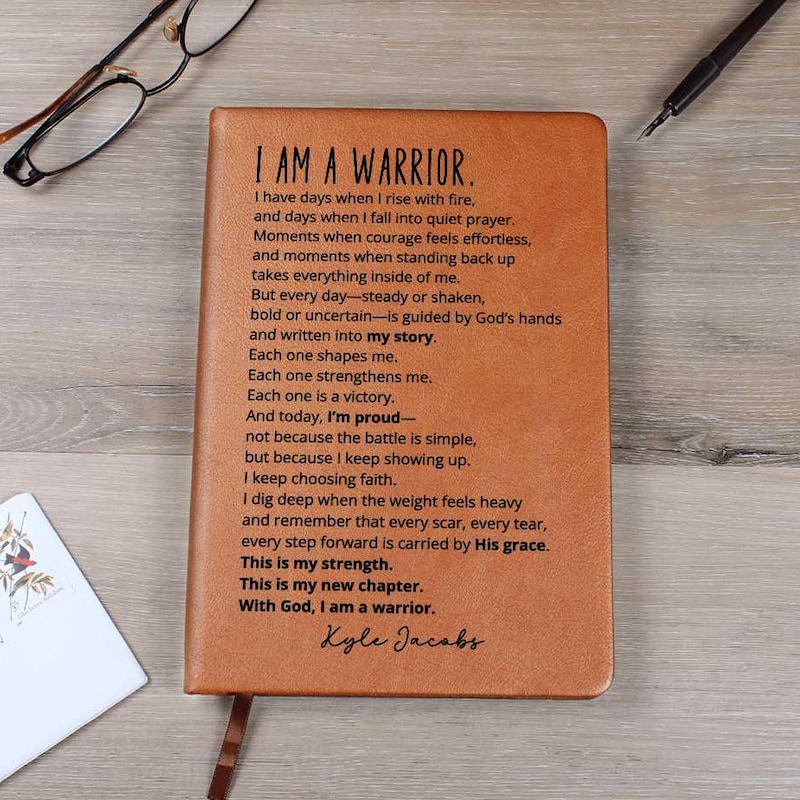 I AM A WARRIOR.
I have days when I rise with fire,
and days when I fall into quiet prayer.
Moments when courage feels effortless,
and moments when standing back up
takes everything inside of me.
But every day—steady or shaken,
bold or uncertain—is guided by God's hands
and written into my story.
Each one shapes me.
Each one strengthens me.
Each one is a victory.
And today, I'm proud—
not because the battle is simple,
but because I keep showing up.
I keep choosing faith.
I dig deep when the weight feels heavy
and remember that every scar, every tear,
every step forward is carried by His grace.
This is my strength.
This is my new chapter.
With God, I am a warrior.
Kyle Jacobs